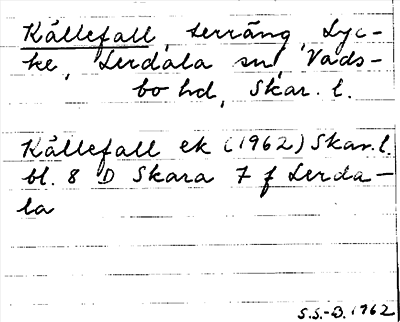 Källefall, terräng, Lyc-
ke, Lerdala sn, Vads-
bo hd, Skar. l.
Källefall ek (1962) Skar. l.
bl. 8 D Skara 7 f Lerda-
la
S.S.-B. 1962